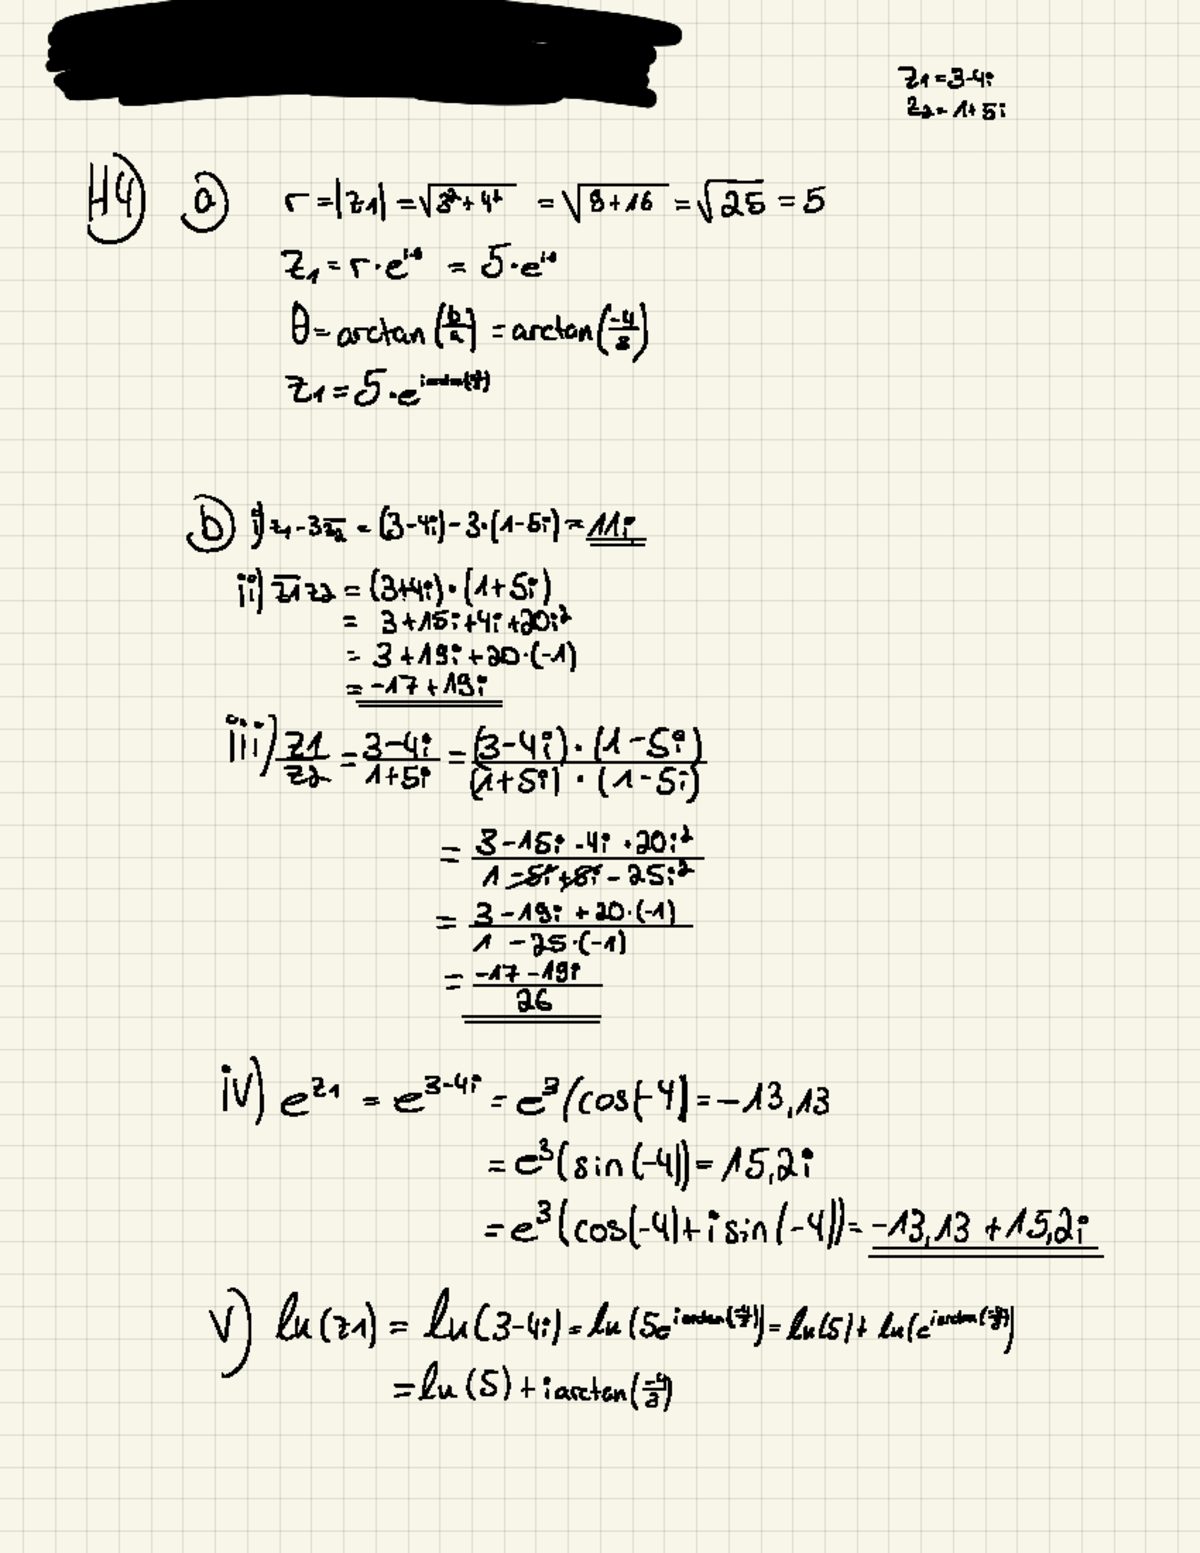 z1 = 3-4i
z2 = 1+5i
H4) a) r = |z1| = √(3²+4²) = √(9+16) = √25 = 5
z1 = r·e^(i·θ) = 5·e^(i·θ)
θ = arctan(b/a) = arctan(-4/3)
z1 = 5·e^(i arctan(-4/3))
b) i) z1 - 3z̅2 = (3-4i) - 3·(1-5i) = 11i
ii) z̅1 z2 = (3+4i)·(1+5i)
= 3+15i+4i+20i²
= 3+19i+20·(-1)
= -17+19i
iii) z1/z2 = (3-4i)/(1+5i) = ((3-4i)·(1-5i))/((1+5i)·(1-5i))
= (3-15i-4i+20i²)/(1-5i+5i-25i²)
= (3-19i+20·(-1))/(1-25·(-1))
= (-17-19i)/26
iv) e^z1 = e^(3-4i) = e³(cos(-4) = -13,13
= e³(sin(-4)) = 15,2i
= e³(cos(-4)+i sin(-4)) = -13,13+15,2i
v) ln(z1) = ln(3-4i) = ln(5e^(i arctan(-4/3))) = ln(5) + ln(e^(i arctan(-4/3)))
= ln(5) + i arctan(-4/3)